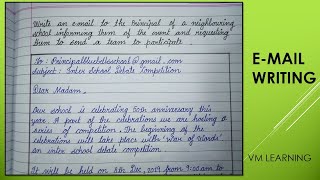 Write an e-mail to the Principal of a neighbouring
school informing them of the event and requesting
them to send a team to participate.
To : Principalbluebellsschool@gmail.com
Subject : Inter School Debate Competition
Dear Madam,
Our school is celebrating 50th anniversary this
year. A part of the celebrations we are hosting a
series of competition. The beginning of the
celebrations will take place with 'War of Words'
an inter school debate competition
It will be held on 8th Dec, 2021 from 9:00am to
E-MAIL
WRITING
VM LEARNING